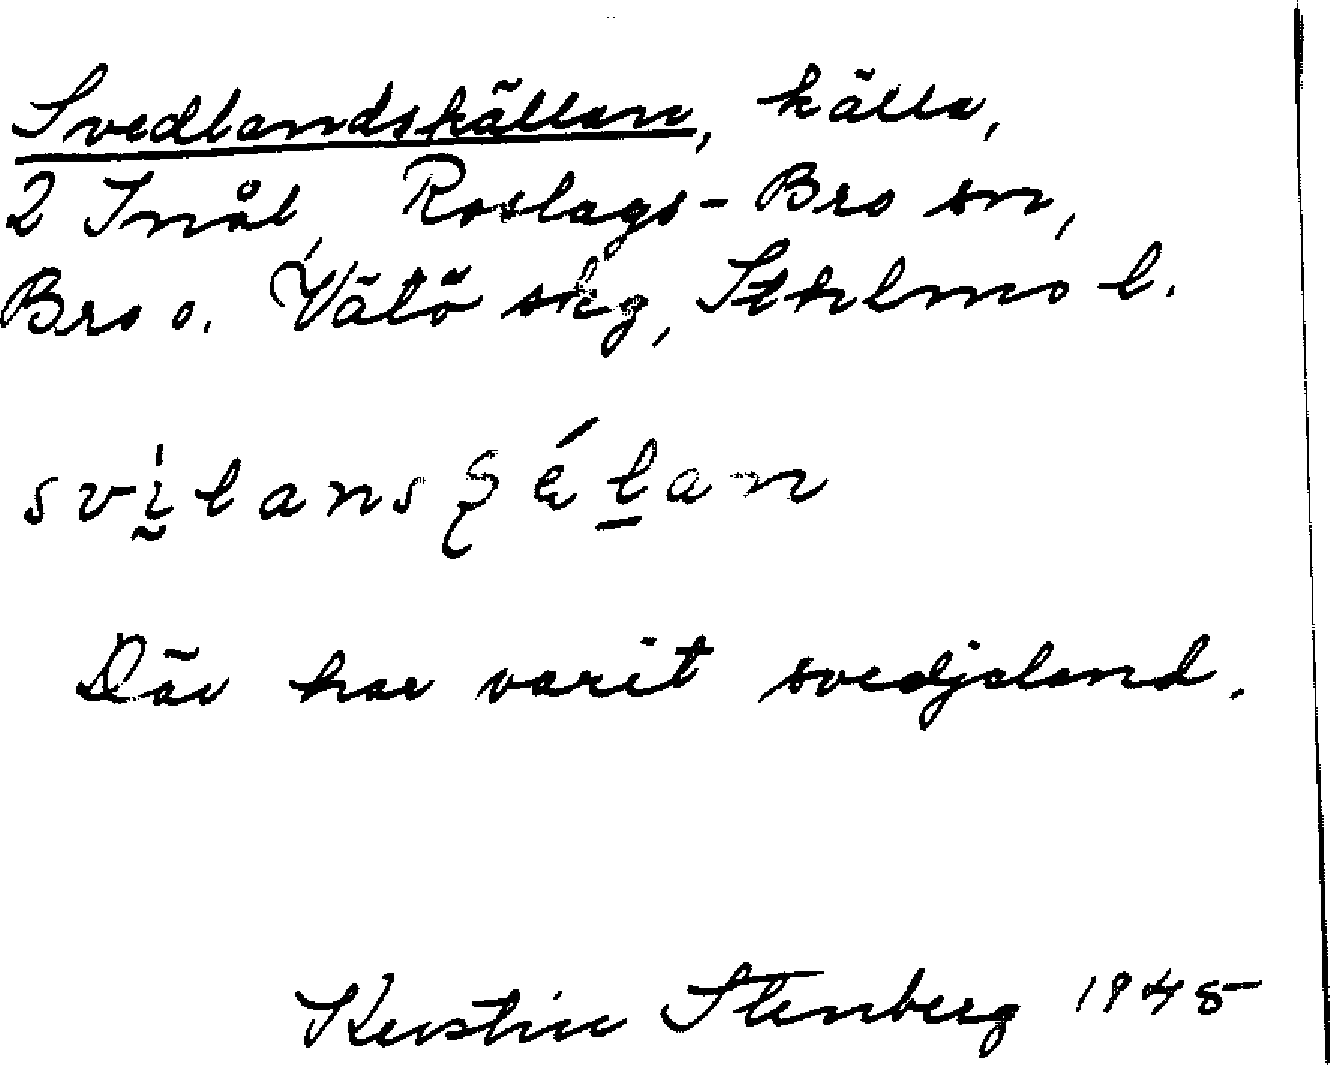 Svedlandskällan, källa,
2 Inål, Roslags-Bro sn,
Bro o. Vätö skg, Sthlms l.
svìlansʂélan
Där har varit svedjeland.
Kerstin Stenberg 1945